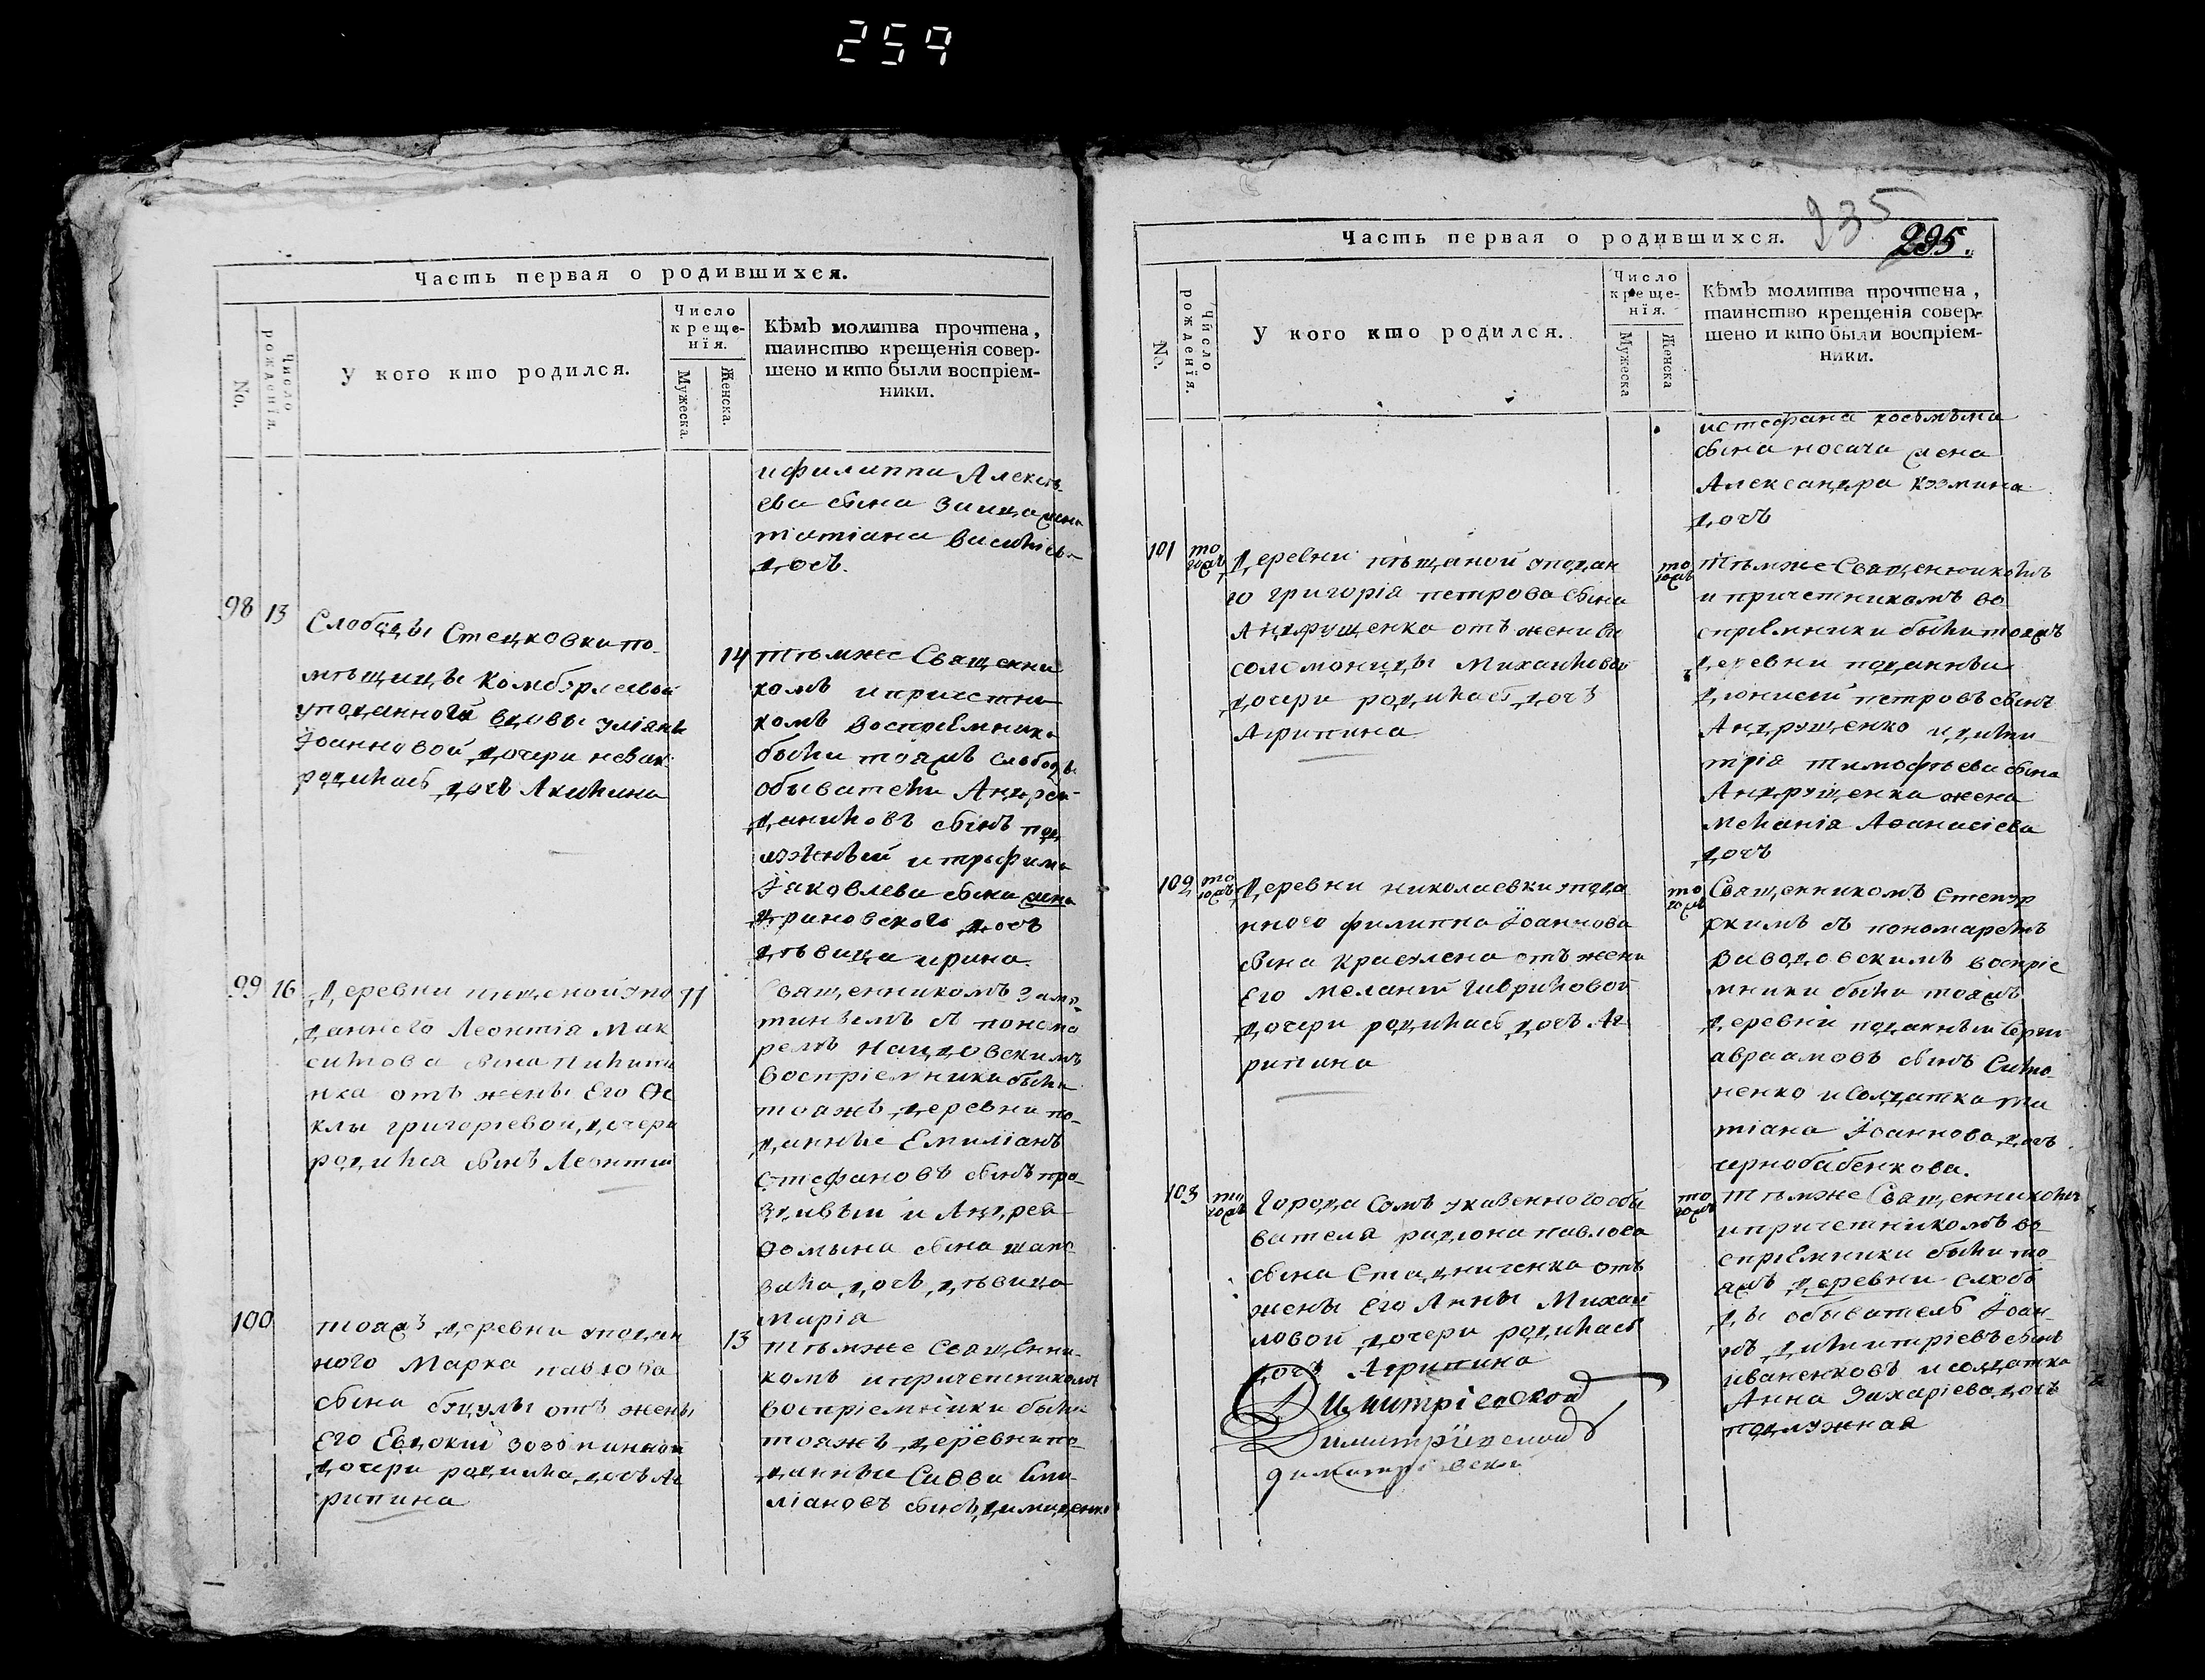 259
Часть первая о родившихся.
No.
Число рожденія.
У кого кто родился.
Число
креще-
нїя.
Мужеска.
Женска.
Кѣмъ молитва прочтена,
таинство крещенія совер-
шено и кто были воспріем-
ники.
и филиппа Алексѣ-
ева сына жена
татіана
дочь.
98 13
Слободы Стецковки по-
мѣщицы Комбурлеевой
уподанной вдовы уліяны
Іоанновой дочери
родилась дочь Акилина
14
Тѣмже Священни
комъ и причетни
комъ воспріемники
были тояжъ слободы
обыватели Андрей
даниловъ сынъ под
лѫжный и трофима
Іаковлева сына
дочь
дѣвица ирина.
99 16
Деревни пещаной упо
данного Леонтія Мак
симова сына
нка отъ жены Его Ѳе
клы григоріевой дочери
родился сынъ Леонтій
17
Священникомъ
съ понома
ремъ
воспріемники были
тояжъ деревни по
данные Емиліанъ
Стефановъ сынъ
и Андрея
Ѳомына сына
дочь дѣвица
марія
100
тояжъ деревни уподан
ного Марка павлова
сына буцулы отъ жены
Его Евдокіи
дочери родила дочь Аг
рипина
13
тѣмже Священни-
комъ и причетникомъ
воспріемники были
тояжъ деревни по
данные Савва Еми
ліановъ сынъ
935
295.
Часть первая о родившихся.
No.
Число рожденїя.
У кого кто родился.
Число
креще-
нїя.
Мужеска
Женска
Кѣмъ молитва прочтена,
таинство крещенія совер-
шено и кто были воспріем-
ники.
и стефана
сына носача жена
Александра Козмина
дочь
101 тогожъ
Деревни пѣщаной уподан
го григорія петрова сына
Андрущенка отъ жены Его
соломониды Михайловой
дочери родилась дочь
Агрипина
тогожъ
Тѣмже Священникомъ
и причетникомъ во
спріемники были тояжъ
деревни поданные
діонисій петровъ сынъ
Андрущенко и дими
трія тимофѣева сына
Андрущенка жена
меланія Аѳанасіева
дочь
102 тогожъ
Деревни николаевки упода
нного филиппа Іоаннова
сына отъ жены
Его меланіи Гавриловой
дочери родилась дочь Аг
рипина
тогожъ
Священникомъ Степур
скимъ съ пономаремъ
воспріе
мники были тояжъ
деревни поданный Сергій
авраамовъ сынъ Симо
ненко и Солдатка та
тіана Іоаннова дочь
чернобабенкова.
103 тогожъ
Города Сумъ указенного обы
вателя радіона павлова
сына Стадниченка отъ
жены Его Анны Михай
ловой дочери родилась
дочь Агрипина
тогожъ
тѣмже Священникомъ
и причетникомъ во
спріемники были то
яжъ деревни слобо
ды обыватель Іоан
нъ димитріевъ сынъ
иваненковъ и солдатка
Анна Захаріева дочь
подлужная
Димитріевской
Димитріевской
димитріевской